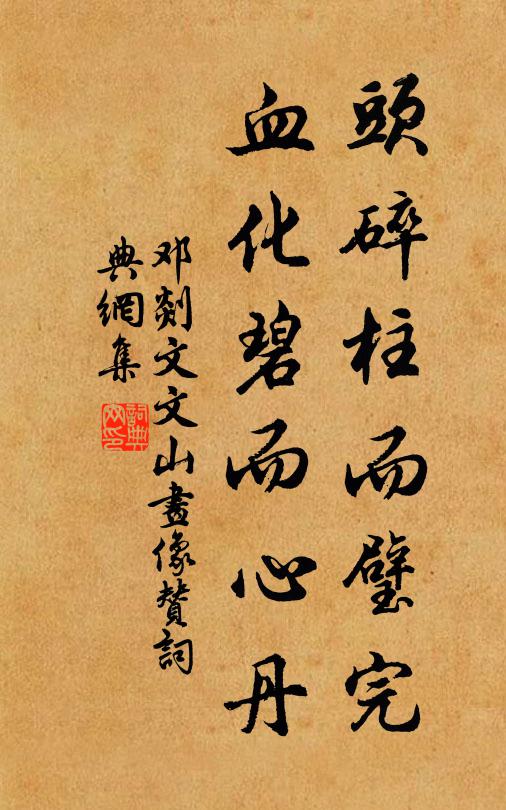 頭碎柱而璧完
血化碧而心丹
邓剡文文山畫像赞詞
典網集
詞典网印